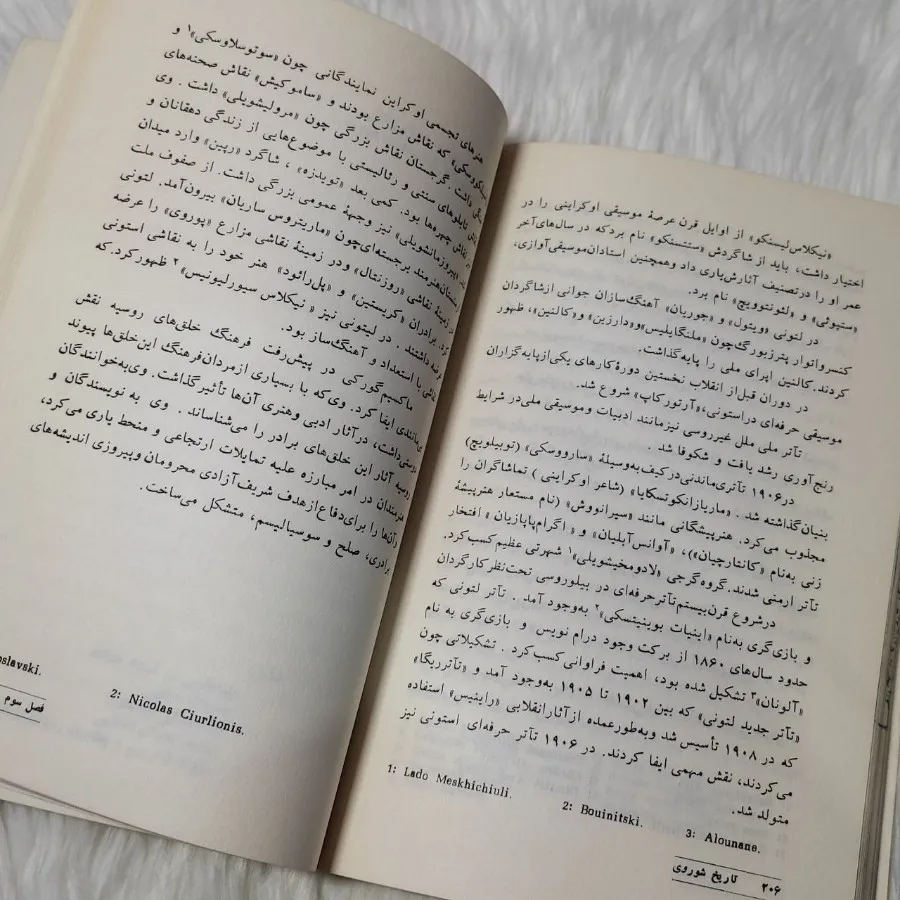 «نیکلاس‌لیسنکو» از اوایل قرن عرصهٔ موسیقی اوکراینی را در
اختیار داشت، باید از شاگردش «ستتسنکو» نام برد که در سال‌های آخر
عمر او را درتصنیف آثارش‌یاری داد و همچنین استادان‌موسیقی‌آوازی،
«ستپوئی» و «لئونتوویچ» نام برد.
در لتونی «ویتول» و «جوریان» آهنگ‌سازان جوانی ازشاگردان
کنسرواتوار پترزبورگ‌چون «ملنگایلیس»و«دارزین» و«کالنین»، ظهور
کردند. کالنین اپرای ملی را پایه‌گذاشت.
در دوران قبل‌از انقلاب نخستین دورهٔ‌کارهای یکی‌ازپایه‌گزاران
موسیقی حرفه‌ای دراستونی،«آرتورکاپ» شروع شد.
تآتر ملی ملل غیرروسی نیزمانند ادبیات وموسیقی ملی‌در شرایط
رنج‌آوری رشد یافت و شکوفا شد.
در۱۹۰۶ تآتری‌ماندنی‌درکیف‌به‌وسیلهٔ «سارووسکی» (توبیلویچ)
بنیان‌گذاشته شد. «ماریازانکوتسکایا» (شاعر اوکراینی) تماشاگران را
مجذوب می‌کرد. هنرپیشگانی مانند «سیرانووش» (نام مستعار هنرپیشهٔ
زنی به‌نام «کانتارچیان»)، «آوانس‌آبلیان» و «اگرام‌پاپازیان» افتخار
تآتر ارمنی شدند.گروه‌گرجی «لادومخیشویلی»۱ شهرتی عظیم کسب‌کرد.
درشروع قرن‌بیستم‌تآترحرفه‌ای در بیلوروسی تحت‌نظرکارگردان
و بازی‌گری به‌نام «اینیات بوینیتسکی»۲ به‌وجود آمد. تآتر لتونی که
حدود سال‌های ۱۸۶۰ از برکت وجود درام نویس و بازی‌گری به نام
«آلونان»۳ تشکیل شده بود، اهمیت فراوانی کسب‌کرد. تشکیلاتی چون
«تآتر جدید لتونی» که بین ۱۹۰۲ تا ۱۹۰۵ به‌وجود آمد و «تآترریگا»
که در ۱۹۰۸ تأسیس شد وبه‌طورعمده ازآثارانقلابی «راینیس» استفاده
می‌کردند، نقش مهمی ایفا کردند. در ۱۹۰۶ تآتر حرفه‌ای استونی نیز
متولد شد.
1: Lado Meskhichiuli.
2: Bouinitski.
3: Alounane.
۲۰۶ تاریخ شوروی
هنرهای تجسمی اوکراین نمایندگانی چون «سوتوسلاوسکی»۱ و
که نقاش مزارع بودند و «ساموکیش» نقاش صحنه‌های
داشت. گرجستان نقاش بزرگی چون «مرولیشویلی» داشت. وی
تابلوهای سنتی و رئالیستی با موضوع‌هایی از زندگی دهقانان و
نقاش چهره‌ها بود. کمی بعد «تویدزه»، شاگرد «رپین» وارد میدان
«پیروزمانشویلی» نیز وجههٔ عمومی بزرگی داشت. از صفوف ملت
هنرمند برجسته‌ای‌چون «ماریتروس ساریان» بیرون‌آمد. لتونی
در زمینهٔ نقاشی «روزنتال» ودر زمینهٔ نقاشی مزارع «پوروی» را عرضه
کرد. برادران «کریستین» و «پل‌رائود» هنر خود را به نقاشی استونی
داشتند. در لیتونی نیز «نیکلاس سیورلیونیس»۲ ظهورکرد.که
نقاشی با استعداد و آهنگ‌ساز بود.
ماکسیم‌گورکی در پیش‌رفت فرهنگ خلق‌های روسیه نقش
ایفا کرد. وی‌که با بسیاری ازمردان‌فرهنگ این‌خلق‌ها پیوند
داشت، درآثار ادبی وهنری آن‌ها تأثیرگذاشت. وی‌به‌خوانندگان
روسیه آثار این خلق‌های برادر را می‌شناساند. وی به نویسندگان و
هنرمندان در امر مبارزه علیه تمایلات ارتجاعی و منحط یاری می‌کرد،
وآن‌ها را برای‌دفاع‌ازهدف شریف‌آزادی محرومان وپیروزی اندیشه‌های
برادری، صلح و سوسیالیسم، متشکل می‌ساخت.
2: Nicolas Ciurlionis.
فصل سوم